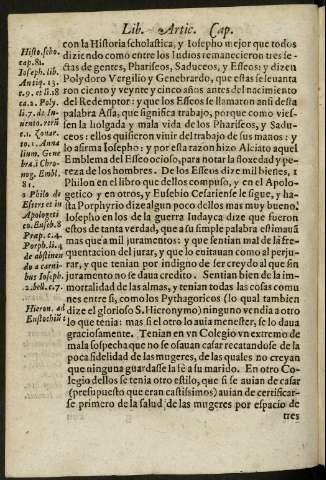 Lib. Artic. Cap.
con la Historia scholastica, y Iosepho mejor que todos
diziendo como entre los Iudios remanecieron tres se-
ctas de gentes, Phariseos, Saduceos, y Esseos: y dizen
Polydoro Vergilio y Genebrardo, que estas se leuanta
ron ciento y veynte y cinco años antes del nacimiento
del Redemptor: y que los Esseos se llamaron ansi desta
palabra Assa, que significa trabajo, porque como vies-
sen la holgada y mala vida de los Phariseos, y Sadu-
ceos: ellos quisieron viuir del trabajo de sus manos: y
lo afirma Iosepho: y por esta razon hizo Alciato aquel
Emblema del Esseo ocioso, para notar la floxedad y pe-
reza de los hombres. De los Esseus dize mil bienes,
Philon en el libro que dellos compuso, y en el Apolo-
getico y en otros, y Eusebio Cesariense le sigue, y ha-
sta Porphyrio dize algun poco dellos mas muy bueno.
Iosepho en los de la guerra Iudayca dize que fueron
estos de tanta verdad, que a su simple palabra estimauã
mas que a mil juramentos: y que sentian mal de la fre-
quentacion del jurar, y que lo euitauan como al perju-
rar, y que tenian por indigno de ser creydo al que sin
juramento no se daua credito. Sentian bien de la im-
mortalidad de las almas, y tenian todas las cosas comu
nes entre si, como los Pythagoricos (lo qual tambien
dize el glorioso S. Hieronymo) ninguno vendia a otro
lo que tenia: mas si el otro lo auia menester, se lo daua
graciosamente. Tenian en vn Colegio vn extremo de
mala sospecha que no se osauan casar recatandose de la
poca fidelidad de las mugeres, de las quales no creyan
que ninguna guardasse la fè a su marido. En otro Co-
legio dellos se tenia otro estilo, que si se auian de casar
(presupuesto que eran castissimos) auian de certificar-
se primero de la salud de las mugeres por espacio de
tres
Histo. scho.
cap. 81.
Ioseph. lib.
Antiq. 13.
c. 9. et li. 18
ca. 2. Poly.
li. 7. de In-
uento. rerũ
c. 1. Zonar-
to. 1. Anna
lium. Gene
bra. i Chro-
nog. Embl.
81.
Philo de
Esseis et in
Apologeti
co. Euseb. 8
Præp. c. 4.
Porph. li. 4
de abstinẽ
do a carni-
bus Ioseph.
2. bell. c. 7.
Hieron. ad
Eustochiũ